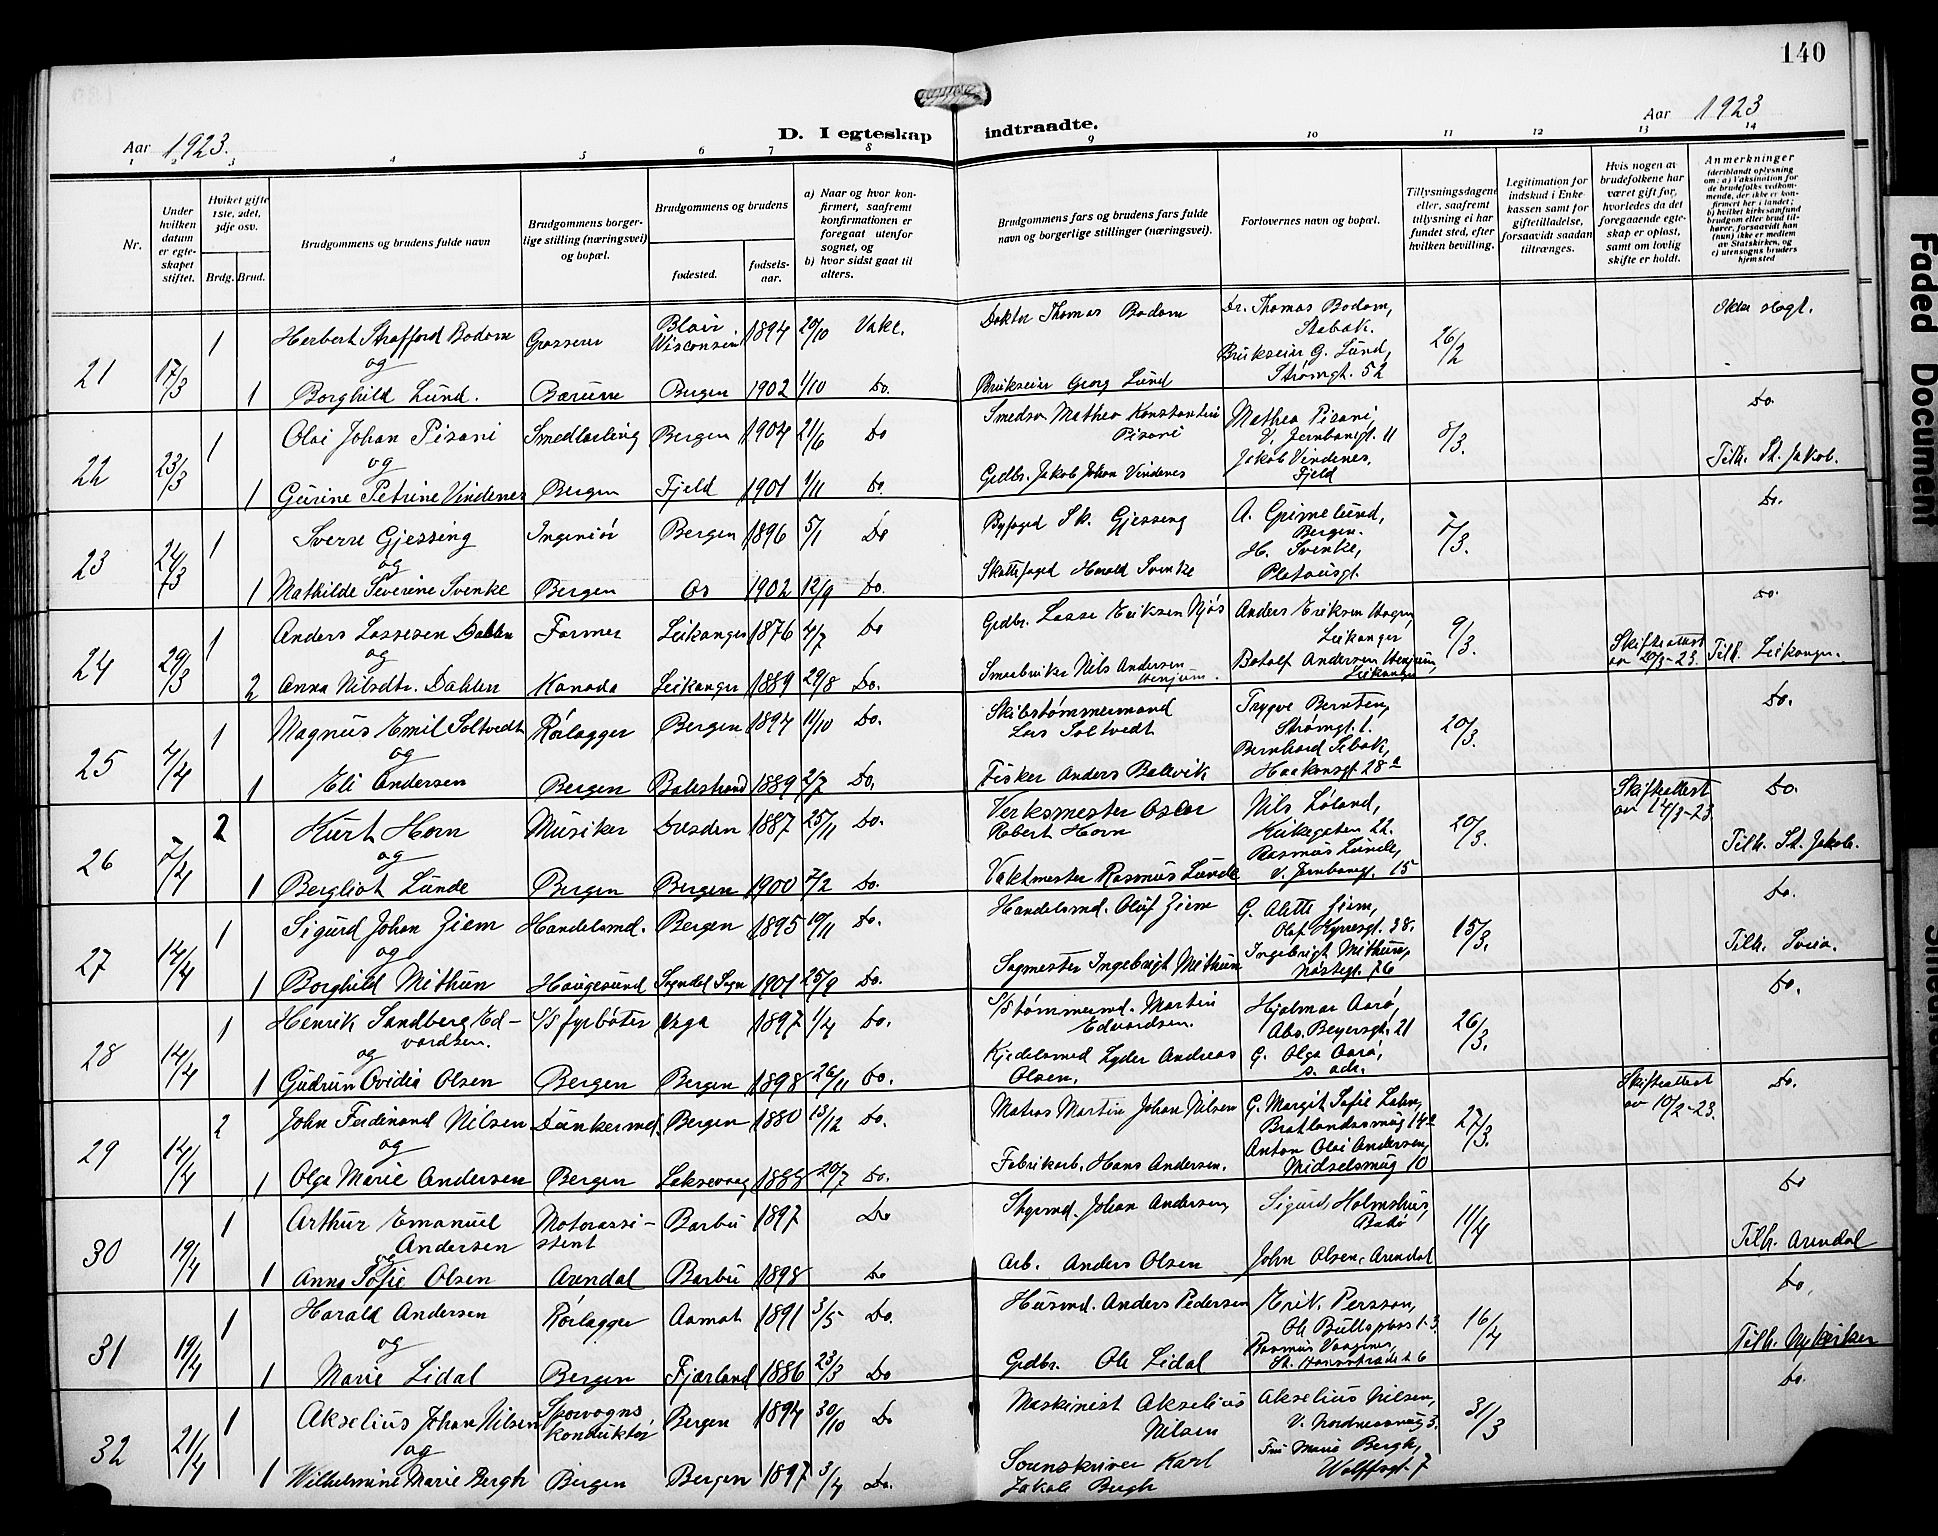 140
Aar 1923.
D. I egteskap indtraadte.
Aar 1923
1 2 3 4 5 6 7 8 9 10 11 12 13 14
Nr.
Under hvilken datum er egteskapet stiftet.
Hviket gifte 1ste, 2det, 3dje osv.
Brdg. Brud.
Brudgommens og brudens fulde navn
Brudgommens borgerlige stilling (næringsvei) og bopæl.
Brudgommens og brudens
fødested.
fødselsaar.
a) Naar og hvor konfirmert, saafremt konfirmationen er foregaat utenfor sognet, og
b) hvor sidst gaat til alters.
Brudgommens fars og brudens fars fulde navn og borgerlige stillinger (næringsvei).
Forlovernes navn og bopæl.
Tillysningsdagene eller, saafremt tillysning ei har fundet sted, efter hvilken bevilling.
Legitimation for indskud i Enkekassen samt for giftetilladelse, forsaavidt saadan tiltrænges.
Hvis nogen av brudefolkene har været gift før, hvorledes da det foregaaende egteskap er opløst, samt om lovlig skifte er holdt.
Anmerkninger (deriblandt oplysning om: a) Vaksination for de brudefolks vedkommende, der ikke er konfirmert her i landet; b) hvilket kirkesamfund brudgom eller brud tilhører, forsaavidt han (hun) ikke er medlem av Statskirken, og c) utensogns bruders hjemsted
21 17/3 1 Herbert Strafford Bodom Grosserer Blair Wisconsin 1894 20/10 Vakt. Doktor Thomas Bodom Dr. Thomas Bodom, Stabæk. 26/2 Ikke slegt.
og
1 Borghild Lund. Bærum Bergen 1902 1/10 Do. Brukseier Georg Lund Brukseier G. Lund, Strømgt. 52
22 23/3 1 Olai Johan Pisani Smedlærling Bergen 1904 21/6 Do Smedsv. Matheo Konstantin Pisani Matheo Pisani, V. Jernbanegt. 11 8/3. Do.
og
1 Gurine Petrine Vindenes Bergen Fjeld 1901 1/11 Do. Grdbr. Jakob Johan Vindenes Jakob Vindenes, Fjeld Tilh. St. Jakob.
23 24/3 1 Sverre Gjessing Ingeniør Bergen 1896 5/1 Do Byfoged Sk. Gjessing A. Grimelund, Bergen. 7/3. Do.
og
1 Mathilde Severine Svenke Bergen Os 1902 12/9 Do. Skattefoged Harald Svenke H. Svenke, Platousgt.
24 29/3 1 Anders Lassesen Dahlen Farmer Leikanger 1876 4/7 Do Grdbr. Lasse Eriksen Njøs Anders Eriksen Hagen, Leikanger 9/3. Skifteattest av 20/3-23. Do.
og
2 Anna Nilsdtr. Dahlen Kanada Leikanger 1889 29/8 Do. Smaabruker Nils Andersen Henjum. Botolf Andersen Henjum, Leikanger Tilh. Leikanger.
25 7/4 1 Magnus Emil Soltvedt Rørlægger Bergen 1894 11/10 Do. Skibstømmermand Lars Soltvedt Trygve Berntsen, Strømgt. 1. 20/3. Do.
og
1 Eli Andersen Bergen Balestrand 1889 2/7 Do. Fisker Anders Balevik Bernhard Sebak, Haakonsgt. 28a
26 7/4 2 Kurt Horn Musiker Dresden 1887 25/11 Do. Verksmester Oscar Robert Horn Nils Løland, Kirkegaten 22. 20/3. Skifteattest av 14/3-23. Do.
og
1 Bergliot Lunde Bergen Bergen 1900 7/2 Do. Vaktmester Rasmus Lunde Rasmus Lunde, V. Jernbanegt. 15 Tilh. St. Jakob.
27 14/4 1 Sigurd Johan Ziem Handelsmd. Bergen 1895 19/11 Do. Handelsmd. Oluf Ziem G. Alette Ziem, Olaf Kyrresgt. 38. 15/3. Do.
og
1 Borghild Mithun Haugesund Sogndal Sogn 1901 25/9 Do. Sagmester Ingebrigt Mithun Ingebrigt Mithun, Nøstegt. 76 Tilh. Svea.
28 14/4 1 Henrik Sandberg Edvardsen. S/S fyrbøter Vega 1897 1/4 Do. S/S tømmermd. Martin Edvardsen. Hjalmar Aarø, Abs. Beyersgt. 21 26/3. Do.
og
1 Gudrun Ovidia Olsen Bergen Bergen 1898 26/11 Do. Kjedelsmed Lyder Andreas Olsen. G. Olga Aarø, s. adr.
29 14/4 2 John Ferdinand Nilsen Dunkermd. Bergen 1880 13/12 Do. Matros Martin Johan Nilsen G. Margit Sofie Lahn, Bratlandssmug 14a 27/3. Skifteattest av 10/2-23. Do.
og
1 Olga Marie Andersen Bergen Laksevaag 1888 20/7 Do. Fabrikarb. Hans Andersen. Anton Olai Andersen, Midselsmug 10
30 19/4 1 Arthur Emanuel Andersen Motorassistent Barbu 1897 Do Styrmd. Johan Andersen, Sigurd Holmshus, 11/4 Do
og
1 Anna Sofie Olsen Arendal Barbu 1898 Do Arb. Anders Olsen John Olsen, Arendal Tilh. Arendal
31 19/4 1 Harald Andersen Rørlægger Aamot 1891 3/5 Do. Husmd. Anders Pedersen Erik Persson, Ole Bullsplass 1-3. 16/4 Do.
og
1 Marie Lidal Bergen Fjærland 1886 23/3 Do Grdbr. Ole Lidal Rasmus Vaagenes, St. Hansstræde 6 Tilh. Nykirken
32 21/4 1 Akselius Johan Nilsen Sporvognskonduktør Bergen 1894 30/10 Do Maskinist Akselius Nilsen Akselius Nilsen, V. Nordnessmug 3. 31/3 Do.
og
1 Wilhelmine Marie Bergh Bergen Bergen 1897 3/4 Do. Sorenskriver Karl Jakob Bergh Fru Marie Bergh, Wolffsgt. 7
Faded Document